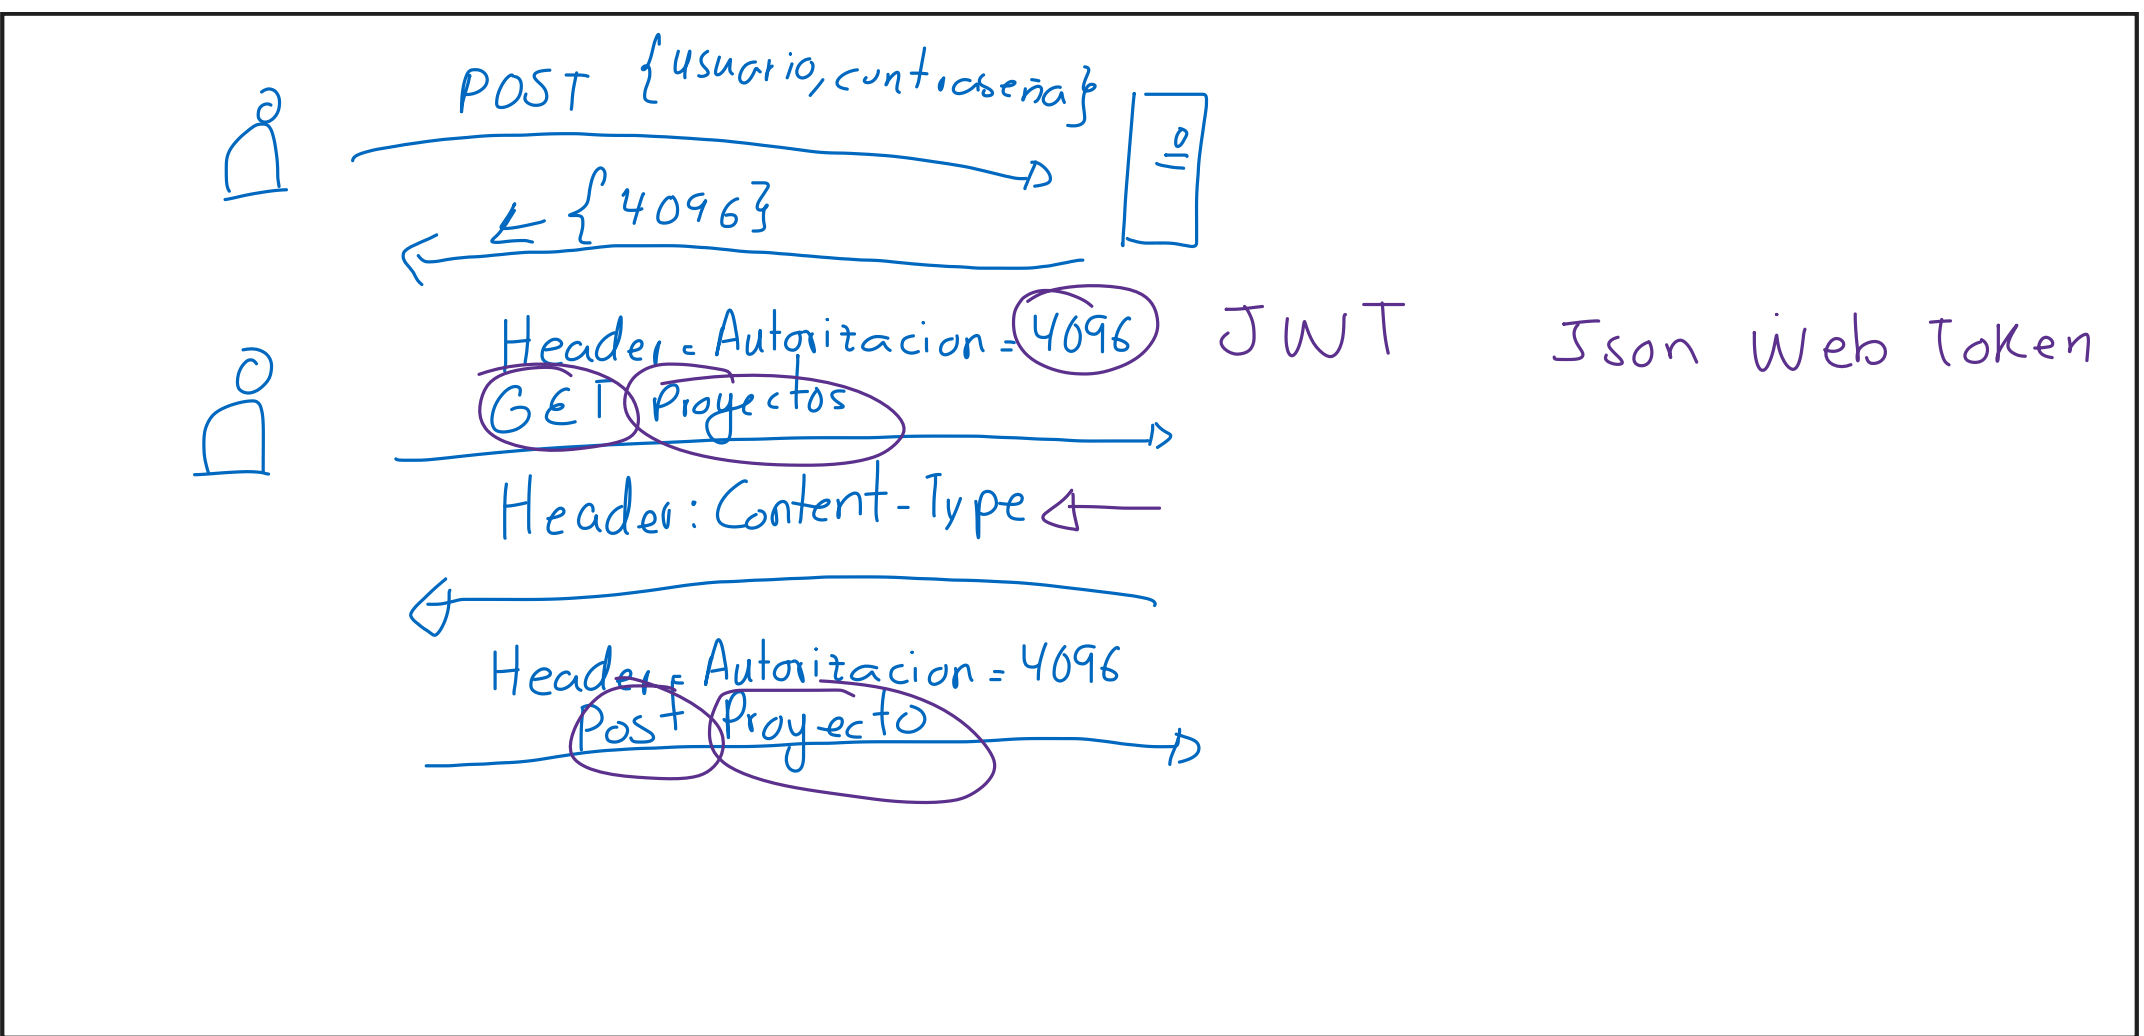 POST {usuario, contraseña}
{4096}
Header = Autorizacion = 4096
JWT
Json Web Token
GET Proyectos
Header: Content-Type
Header = Autorizacion = 4096
Post Proyecto